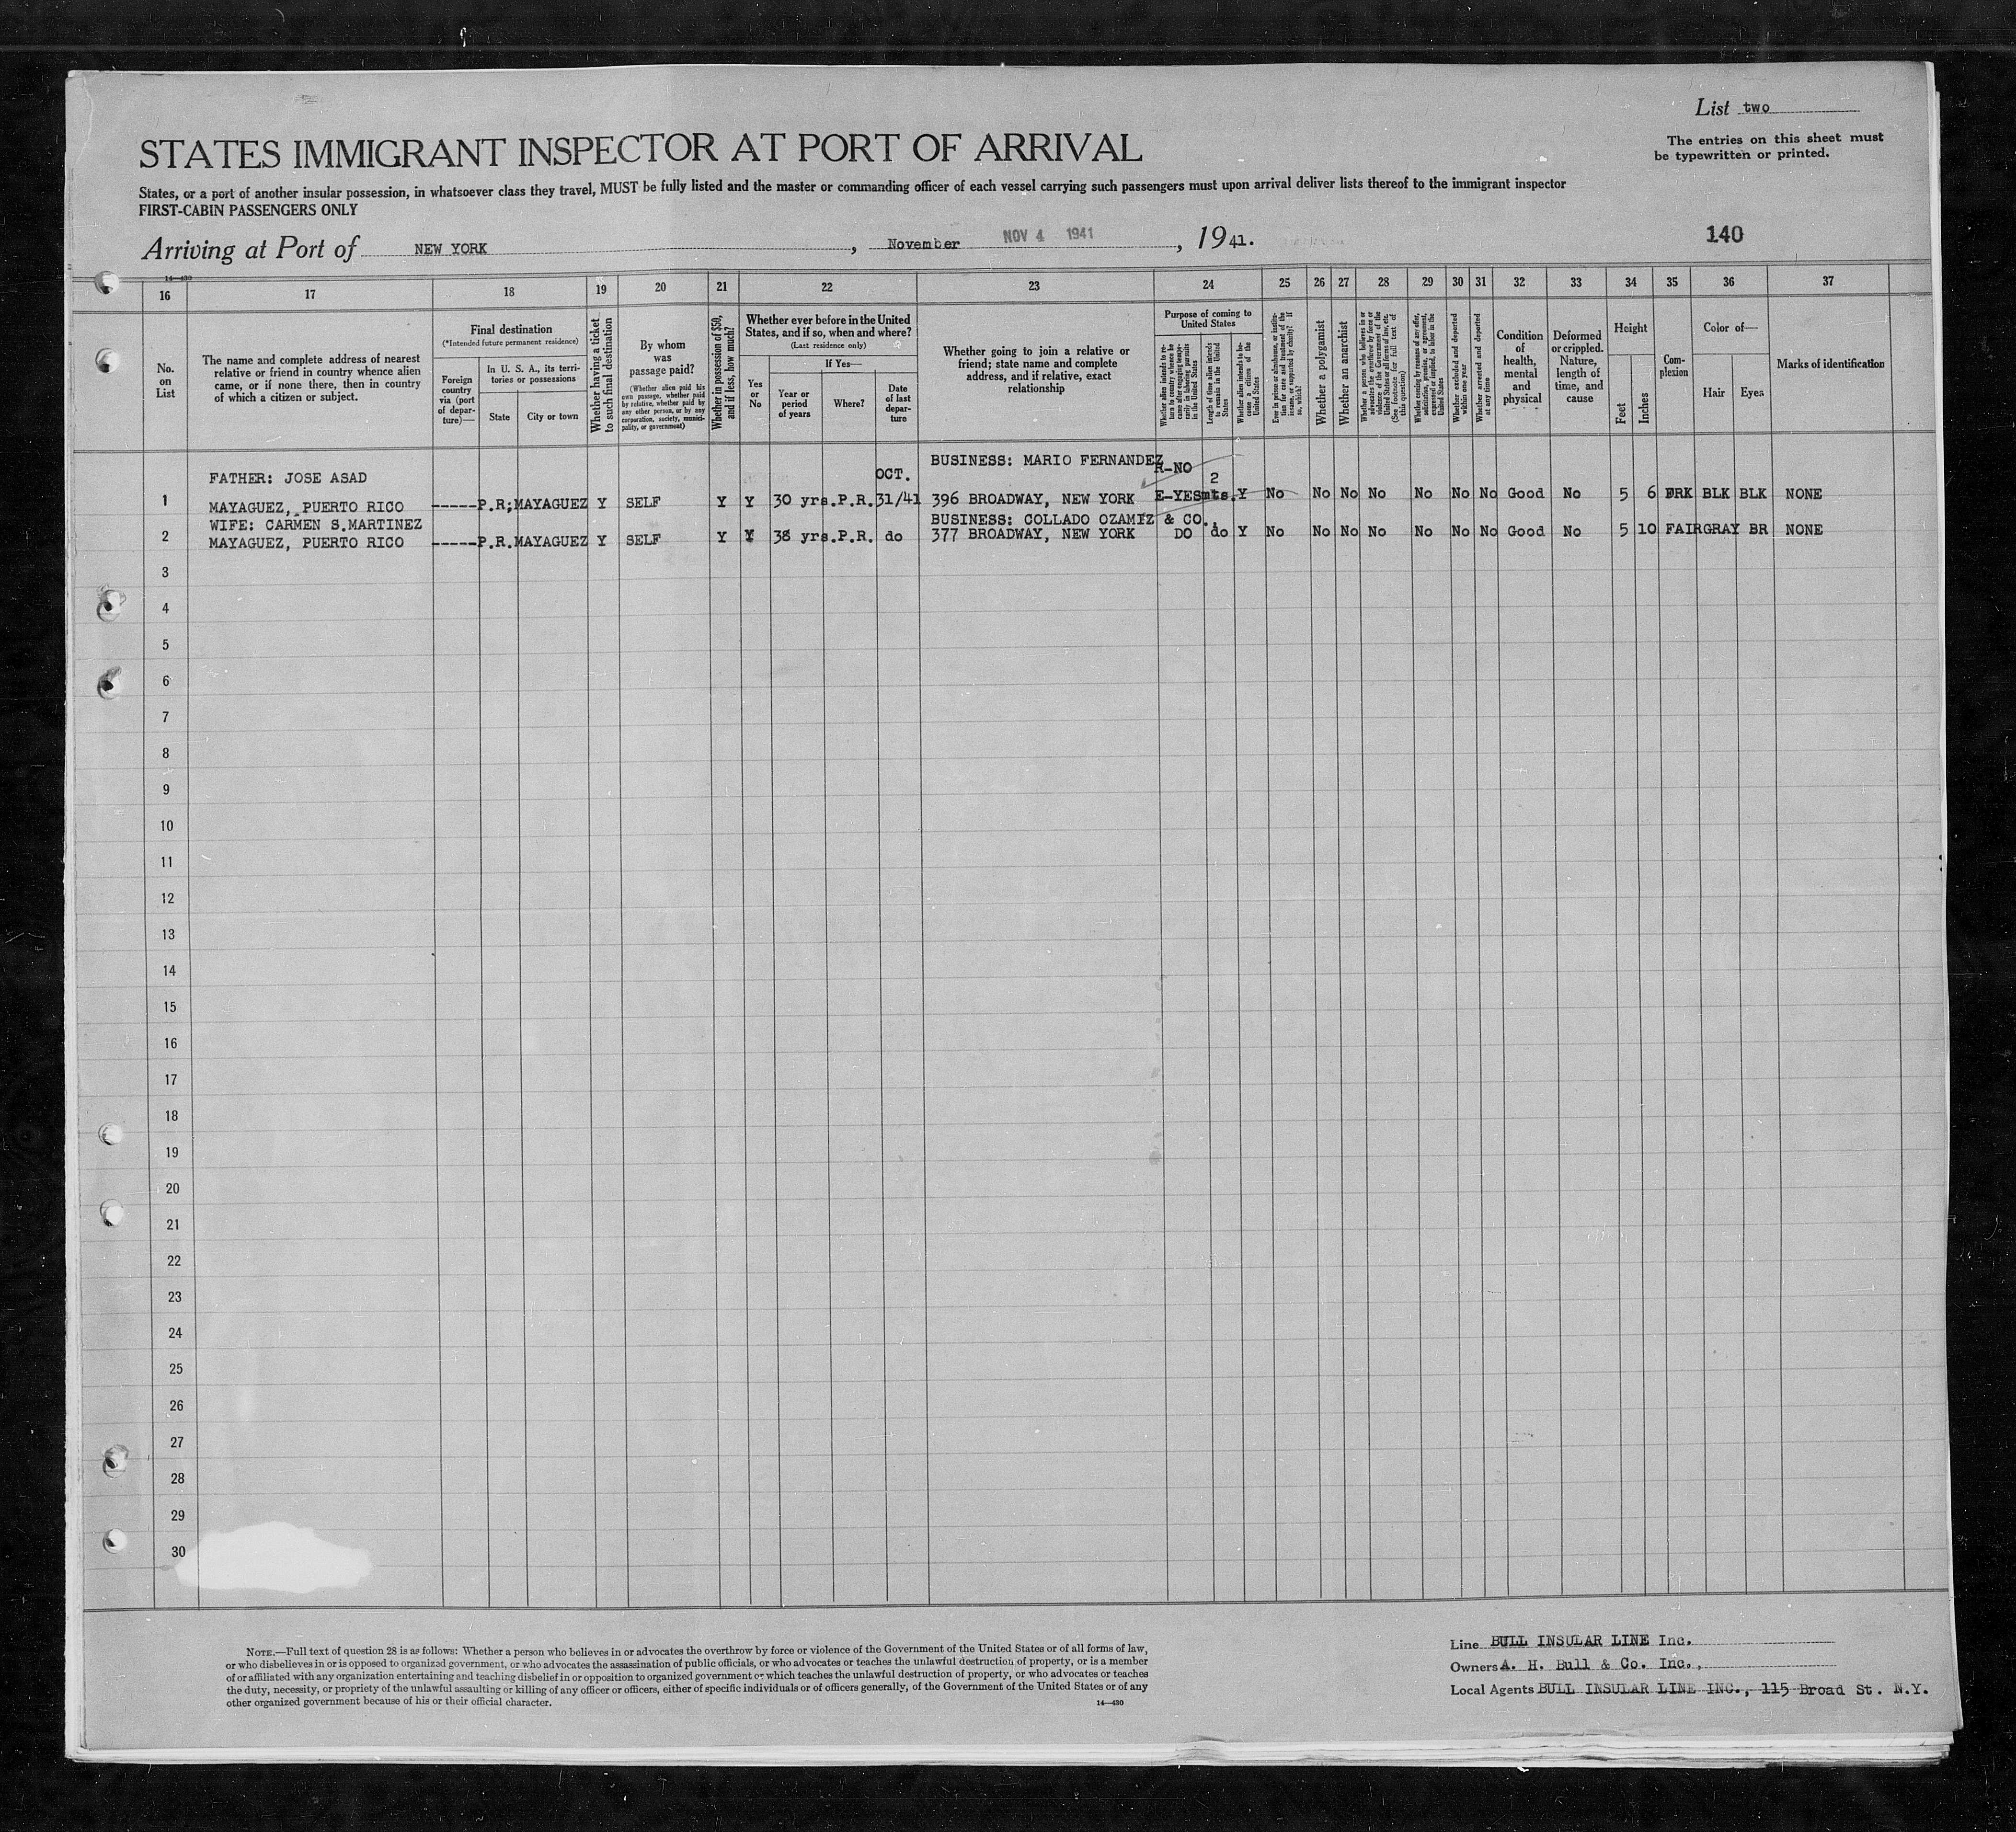 List two
The entries on this sheet must
be typewritten or printed.
STATES IMMIGRANT INSPECTOR AT PORT OF ARRIVAL
States, or a port of another insular possession, in whatsoever class they travel, MUST be fully listed and the master or commanding officer of each vessel carrying such passengers must upon arrival deliver lists thereof to the immigrant inspector
FIRST-CABIN PASSENGERS ONLY
Arriving at Port of NEW YORK, November NOV 4 1941, 1941.
140
14—430
16 17 18 19 20 21 22 23 24 25 26 27 28 29 30 31 32 33 34 35 36 37
No.
on
List
The name and complete address of nearest
relative or friend in country whence alien
came, or if none there, then in country
of which a citizen or subject.
Final destination
(*Intended future permanent residence)
Foreign
country
via (port
of depar-
ture)—
In U. S. A., its terri-
tories or possessions
State
City or town
Whether having a ticket
to such final destination
By whom
was
passage paid?
(Whether alien paid his
own passage, whether paid
by relative, whether paid by
any other person, or by any
corporation, society, munici-
pality, or government)
Whether in possession of $50,
and if less, how much?
Whether ever before in the United
States, and if so, when and where?
(Last residence only)
Yes
or
No
If Yes—
Year or
period
of years
Where?
Date
of last
depar-
ture
Whether going to join a relative or
friend; state name and complete
address, and if relative, exact
relationship
Purpose of coming to
United States
Whether alien intends to re-
turn to country whence he
came after engaging tempo-
rarily in laboring pursuits
in the United States
Length of time alien intends
to remain in the United
States
Whether alien intends to be-
come a citizen of the
United States
Ever in prison or almshouse, or institu-
tion for care and treatment of the
insane, or supported by charity? If
so, which?
Whether a polygamist
Whether an anarchist
Whether a person who believes in or
advocates the overthrow by force or
violence of the Government of the
United States or all forms of law, etc.
(See footnote for full text of
this question)
Whether coming by reasons of any offer,
solicitation, promise, or agreement,
expressed or implied, to labor in the
United States
Whether excluded and deported
within one year
Whether arrested and deported
at any time
Condition
of
health,
mental
and
physical
Deformed
or crippled.
Nature,
length of
time, and
cause
Height
Feet
Inches
Com-
plexion
Color of—
Hair
Eyes
Marks of identification
FATHER: JOSE ASAD OCT. BUSINESS: MARIO FERNANDEZ R-NO 2
1 MAYAGUEZ, PUERTO RICO -----P.R; MAYAGUEZ Y SELF Y Y 30 yrs. P.R. 31/41 396 BROADWAY, NEW YORK E-YES mts. Y No No No No No No No Good No 5 6 DRK BLK BLK NONE
WIFE: CARMEN S.MARTINEZ BUSINESS: COLLADO OZAMIZ & CO.,
2 MAYAGUEZ, PUERTO RICO -----P.R. MAYAGUEZ Y SELF Y Y 38 yrs. P.R. do 377 BROADWAY, NEW YORK DO do Y No No No No No No No Good No 5 10 FAIR GRAY BR NONE
3
4
5
6
7
8
9
10
11
12
13
14
15
16
17
18
19
20
21
22
23
24
25
26
27
28
29
30
NOTE.—Full text of question 28 is as follows: Whether a person who believes in or advocates the overthrow by force or violence of the Government of the United States or of all forms of law,
or who disbelieves in or is opposed to organized government, or who advocates the assassination of public officials, or who advocates or teaches the unlawful destruction of property, or is a member
of or affiliated with any organization entertaining and teaching disbelief in or opposition to organized government or which teaches the unlawful destruction of property, or who advocates or teaches
the duty, necessity, or propriety of the unlawful assaulting or killing of any officer or officers, either of specific individuals or of officers generally, of the Government of the United States or of any
other organized government because of his or their official character.
14—430
Line BULL INSULAR LINE Inc.
Owners A. H. Bull & Co. Inc.,
Local Agents BULL INSULAR LINE INC., 115 Broad St. N.Y.